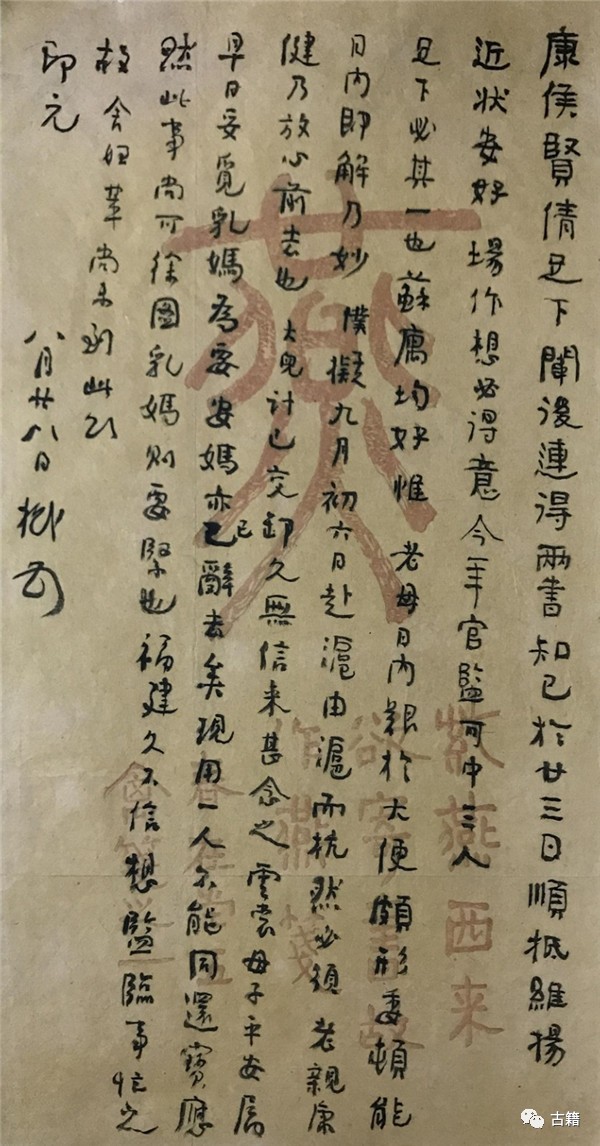 康侯賢倩足下闈後連得兩書知已於廿三日順抵維揚
近狀安好 場作想必得意今年官監可中三人
足下必其一也蘇寓均好惟 老母日內艱於大便頗形委頓能
日內即解乃妙 僕擬九月初六日赴滬由滬而杭然必須 老親康
健乃放心前去也 大兒計已交卸久無信來甚念之雲裳母子平安屬
早日妥覓乳媽為要安媽亦已辭去矣現用一人不能同還寶應
然此事尚可徐圖乳媽則要緊也福建久不信想監臨事忙之
故 舍姪輩尚未到此頌
即元
八月廿八日 樾
紫燕西來
古籍